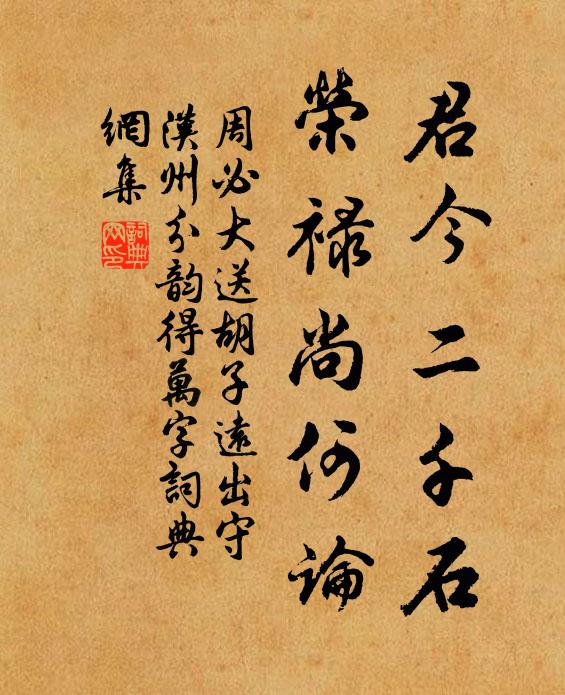 君今二千石
榮禄尚何論
周必大送胡子遠出守
漢州分韵得萬字詞典
網集
詞典网印